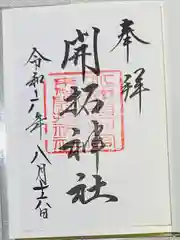 奉拝
開拓神社
令和六年 八月十六日